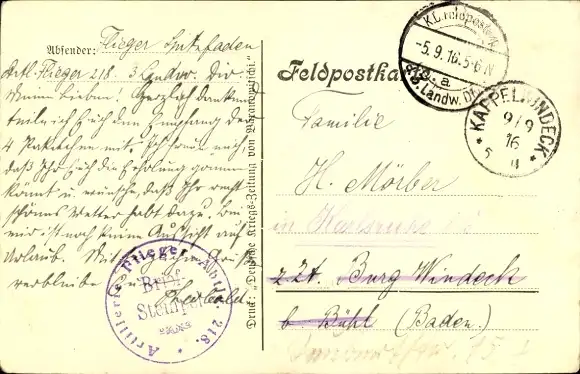 Absender: Flieger
Artl. Flieger 218. 3 Landw. Div.
Meine Lieben! Herzlich dankend
teile ich Euch den Empfang der
4 Paketchen mit. Ich freue mich,
daß Ihr Euch die Erholung gönnen
könnt u. wünsche, daß Ihr recht
schönes Wetter habt dazu. Bei
mir ist noch keine Aussicht auf
Urlaub. Mit
verbleibe
Artillerie-Flieger-Abtlg. 218.
Brief
Stempel
Druck: "Deutsche Kriegs-Zeitung von Baranowitschi."
Feldpostkarte
K.D. Feldpost
-5.9.16.5-6N
a
Landw. Div.
KAPPELWINDECK
9/9
16
Familie
H. Mörber
in Karlsruhe
z. Zt. Burg Windeck
b. Bühl (Baden).